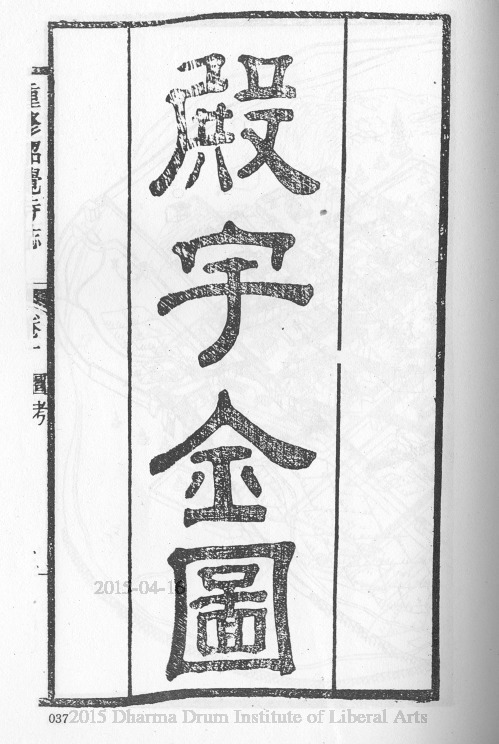 殿宇金圖
重修昭覺寺志 卷一 圖考
2015-04-16
037
2015 Dharma Drum Institute of Liberal Arts